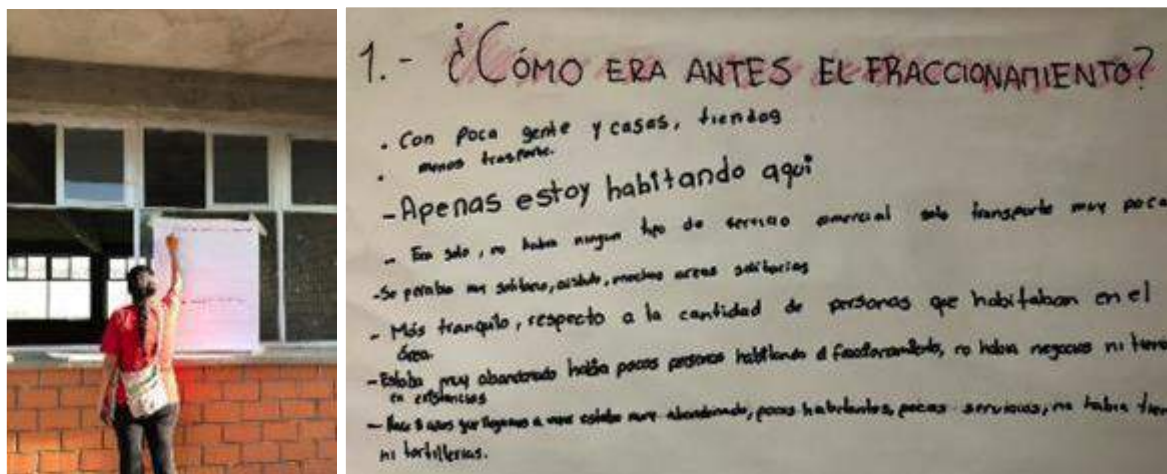 1.- ¿CÓMO ERA ANTES EL FRACCIONAMIENTO?
. Con poca gente y casas, tiendas
. menos trasporte.
-Apenas estoy habitando aqui
- Era solo, no habia ningun tipo de servicio omercial solo transporte muy poca
-Se persibia muy solitario, aislado, muchas areas solitarias
- Más tranquilo, respecto a la cantidad de personas que habitaban en el
área.
-Estaba muy abandonado había pocas personas habitando el fraccionamiento, no habia negocios ni
en existencias
- Hace 8 años que llegamos a vivir estaba muy abandonado, pocos habitantes, pocos servicios, no habia
ni tortillerias.